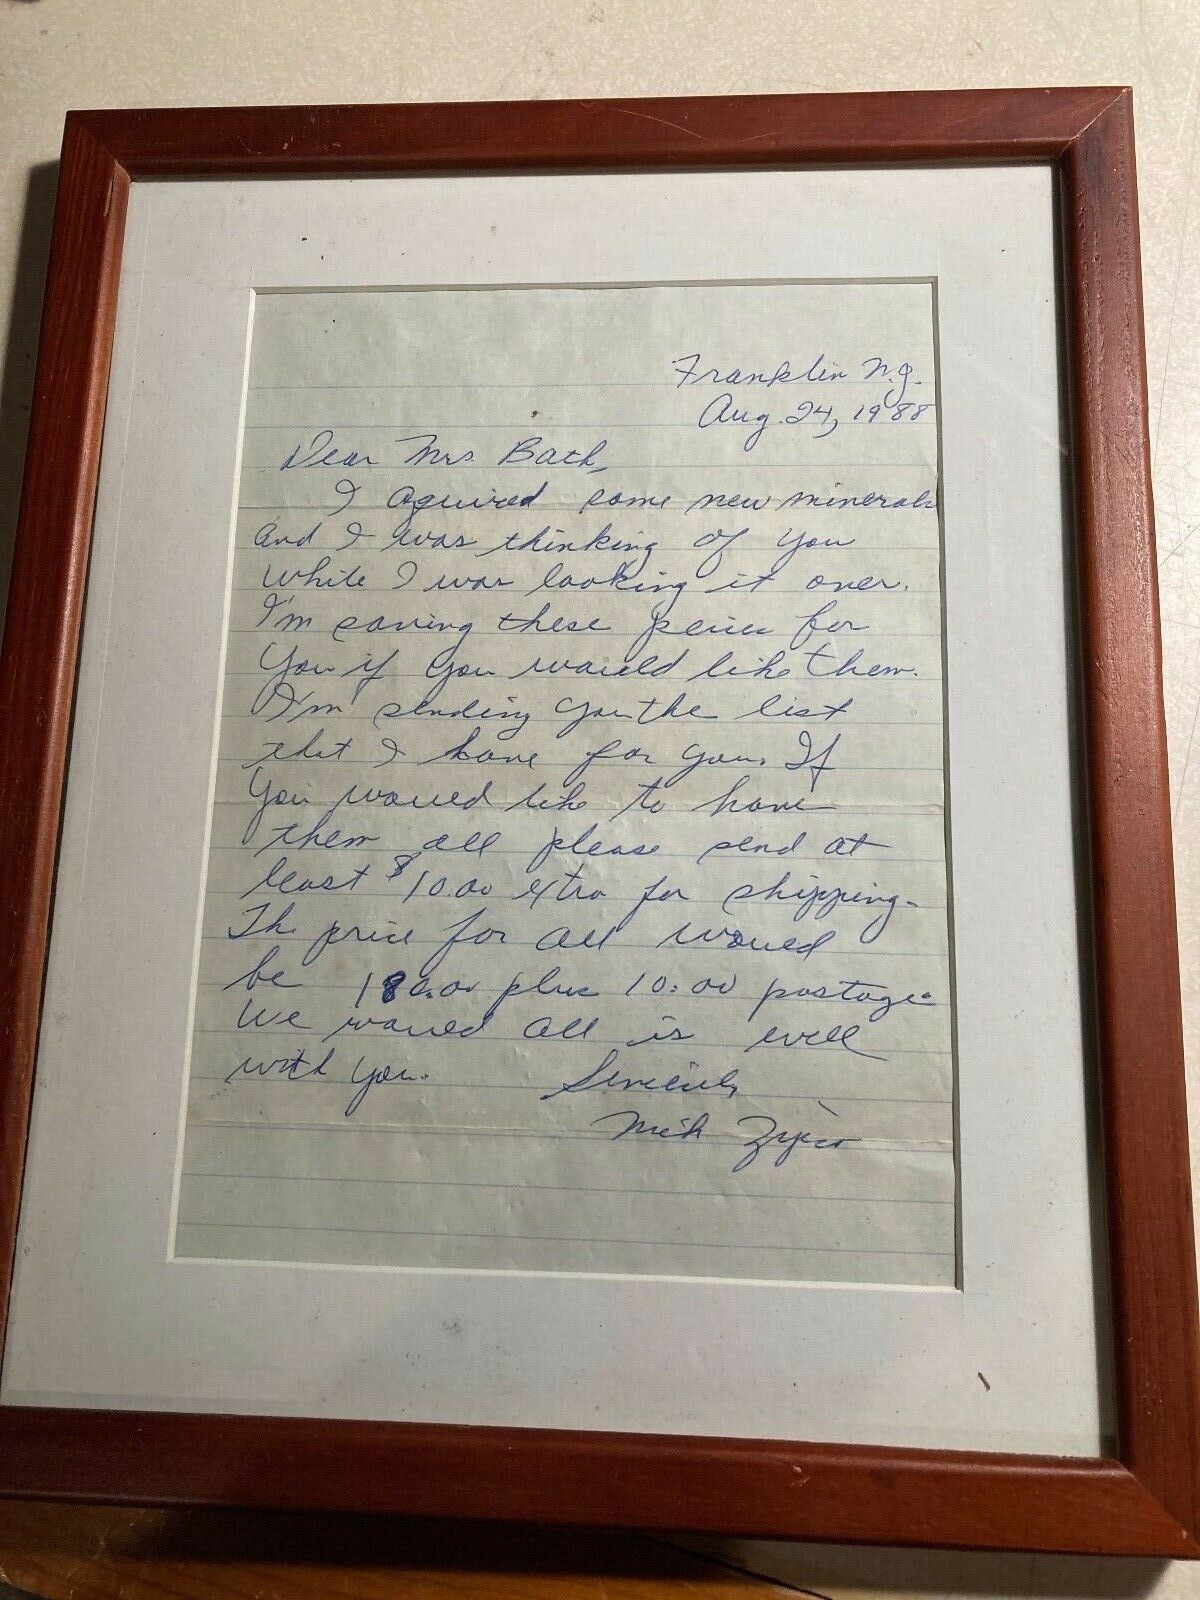 Franklin N.J.
Aug. 24, 1988
Dear Mrs. Bath,
I aquired some new minerals
and I was thinking of you
while I was looking it over.
I'm saving these for
you if you would like them.
I'm sending you the list
that I have for you. If
you would like to have
them all please send at
least $10.00 extra for shipping.
The price for all would
be 180.00 plus 10:00 postage.
We all is well
with you. Sincerely
Nick Zipco